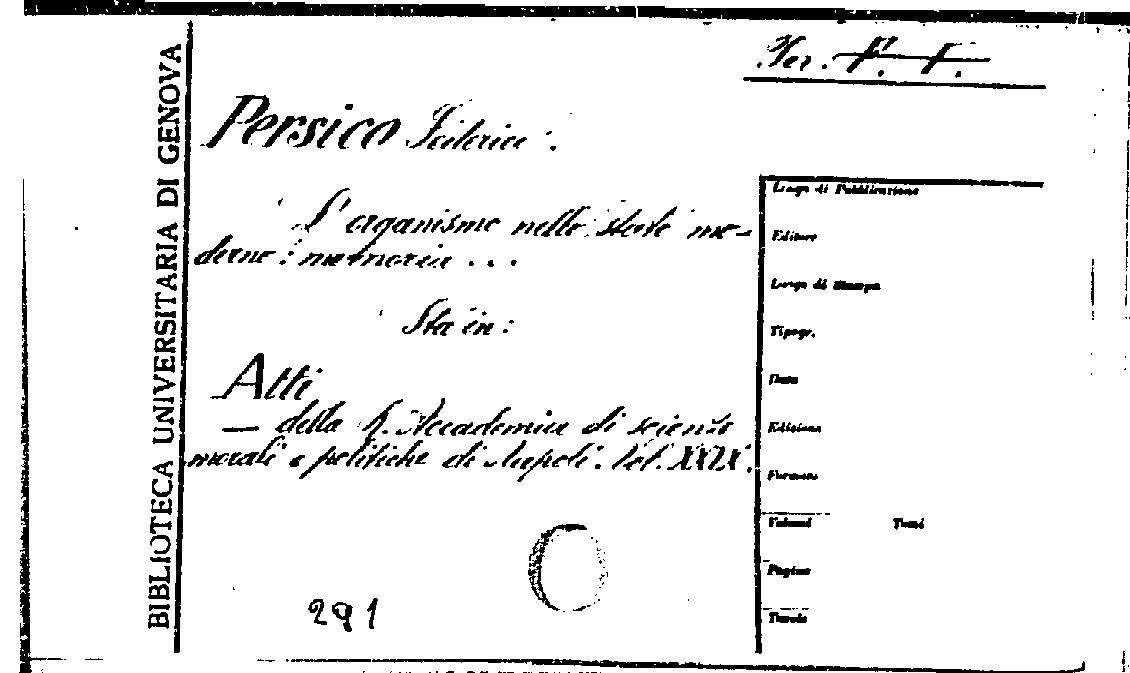 BIBLIOTECA UNIVERSITARIA DI GENOVA
Per. F. F.
Persico Federico.
L'organismo nello stato mo-
derno: memoria ...
Sta in:
Atti
— della R. Accademia di scienze
morali e politiche di Napoli. Vol. XXIX.
291
Luogo di Pubblicazione
Editore
Luogo di Stampa
Tipogr.
Data
Edizione
Formato
Volumi Tomi
Pagine
Tavole